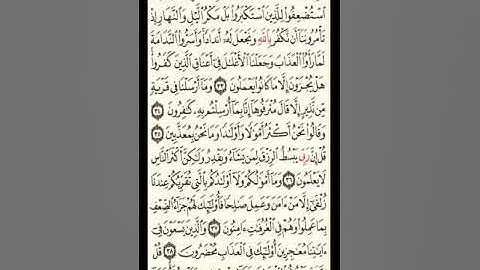 ٱسْتُضْعِفُوا۟ لِلَّذِينَ ٱسْتَكْبَرُوا۟ بَلْ مَكْرُ ٱلَّيْلِ وَٱلنَّهَارِ إِذْ
تَأْمُرُونَنَآ أَن نَّكْفُرَ بِٱللَّهِ وَنَجْعَلَ لَهُۥٓ أَندَادًا وَأَسَرُّوا۟ ٱلنَّدَامَةَ
لَمَّا رَأَوُا۟ ٱلْعَذَابَ وَجَعَلْنَا ٱلْأَغْلَٰلَ فِىٓ أَعْنَاقِ ٱلَّذِينَ كَفَرُوا۟
هَلْ يُجْزَوْنَ إِلَّا مَا كَانُوا۟ يَعْمَلُونَ ٣٣ وَمَآ أَرْسَلْنَا فِى قَرْيَةٍ
مِّن نَّذِيرٍ إِلَّا قَالَ مُتْرَفُوهَآ إِنَّا بِمَآ أُرْسِلْتُم بِهِۦ كَٰفِرُونَ ٣٤
وَقَالُوا۟ نَحْنُ أَكْثَرُ أَمْوَٰلًا وَأَوْلَٰدًا وَمَا نَحْنُ بِمُعَذَّبِينَ ٣٥
قُلْ إِنَّ رَبِّى يَبْسُطُ ٱلرِّزْقَ لِمَن يَشَآءُ وَيَقْدِرُ وَلَٰكِنَّ أَكْثَرَ ٱلنَّاسِ
لَا يَعْلَمُونَ ٣٦ وَمَآ أَمْوَٰلُكُمْ وَلَآ أَوْلَٰدُكُم بِٱلَّتِى تُقَرِّبُكُمْ عِندَنَا
زُلْفَىٰٓ إِلَّا مَنْ ءَامَنَ وَعَمِلَ صَٰلِحًا فَأُو۟لَٰٓئِكَ لَهُمْ جَزَآءُ ٱلضِّعْفِ
بِمَا عَمِلُوا۟ وَهُمْ فِى ٱلْغُرُفَٰتِ ءَامِنُونَ ٣٧ وَٱلَّذِينَ يَسْعَوْنَ فِىٓ
ءَايَٰتِنَا مُعَٰجِزِينَ أُو۟لَٰٓئِكَ فِى ٱلْعَذَابِ مُحْضَرُونَ ٣٨ قُلْ